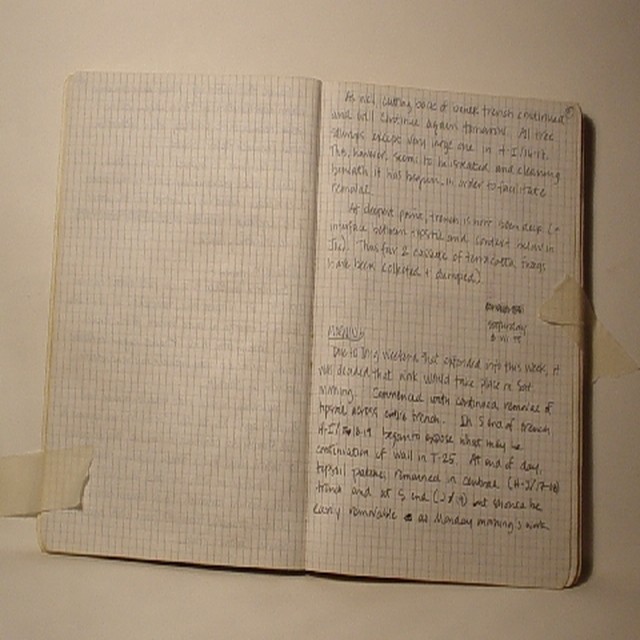 As well cutting back of trench continued
and will continue again tomorrow. All tree
stumps except very large one in H-I/16-17.
This, however, seems to be isolated and cleaning
beneath it has begun in order to facilitate
removal.
At deepest point, trench is now deep (=
interface between topsoil and context below in
Thus far 2 cassette of terracotta frags
have been collected + dumped)
Saturday
MORNING
Due to long weekend that extended into this week, it
was decided that work would take place on Sat.
morning. Commenced with continued removal of
topsoil across entire trench. In S end of trench,
H-I/ 18-19 began to expose what may be
continuation of wall in T-25. At end of day,
topsoil patches remained in central (H-J/17-18)
trench and at S end (J 19) but should be
easily removable as Monday morning's work